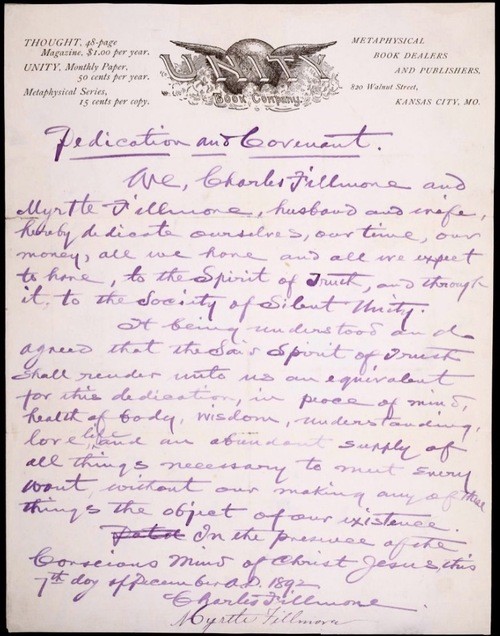 THOUGHT, 48-page
Magazine, $1.00 per year.
UNITY, Monthly Paper,
50 cents per year.
Metaphysical Series,
15 cents per copy.
UNITY
Book Company.
METAPHYSICAL
BOOK DEALERS
AND PUBLISHERS,
820 Walnut Street,
KANSAS CITY, MO.
Dedication and Covenant.
We, Charles Fillmore and
Myrtle Fillmore, husband and wife,
hereby dedicate ourselves, our time, our
money, all we have and all we expect
to have, to the Spirit of Truth, and through
it, to the Society of Silent Unity.
It being understood and
agreed that the Said Spirit of Truth
shall render unto us an equivalent
for this dedication, in peace of mind,
health of body, wisdom, understanding,
love, life and an abundant supply of
all things necessary to meet every
want, without our making any of these
things the object of our existence.
In the presence of the
Conscious Mind of Christ Jesus, this
7th day of December A.D. 1892
Charles Fillmore.
Myrtle Fillmore